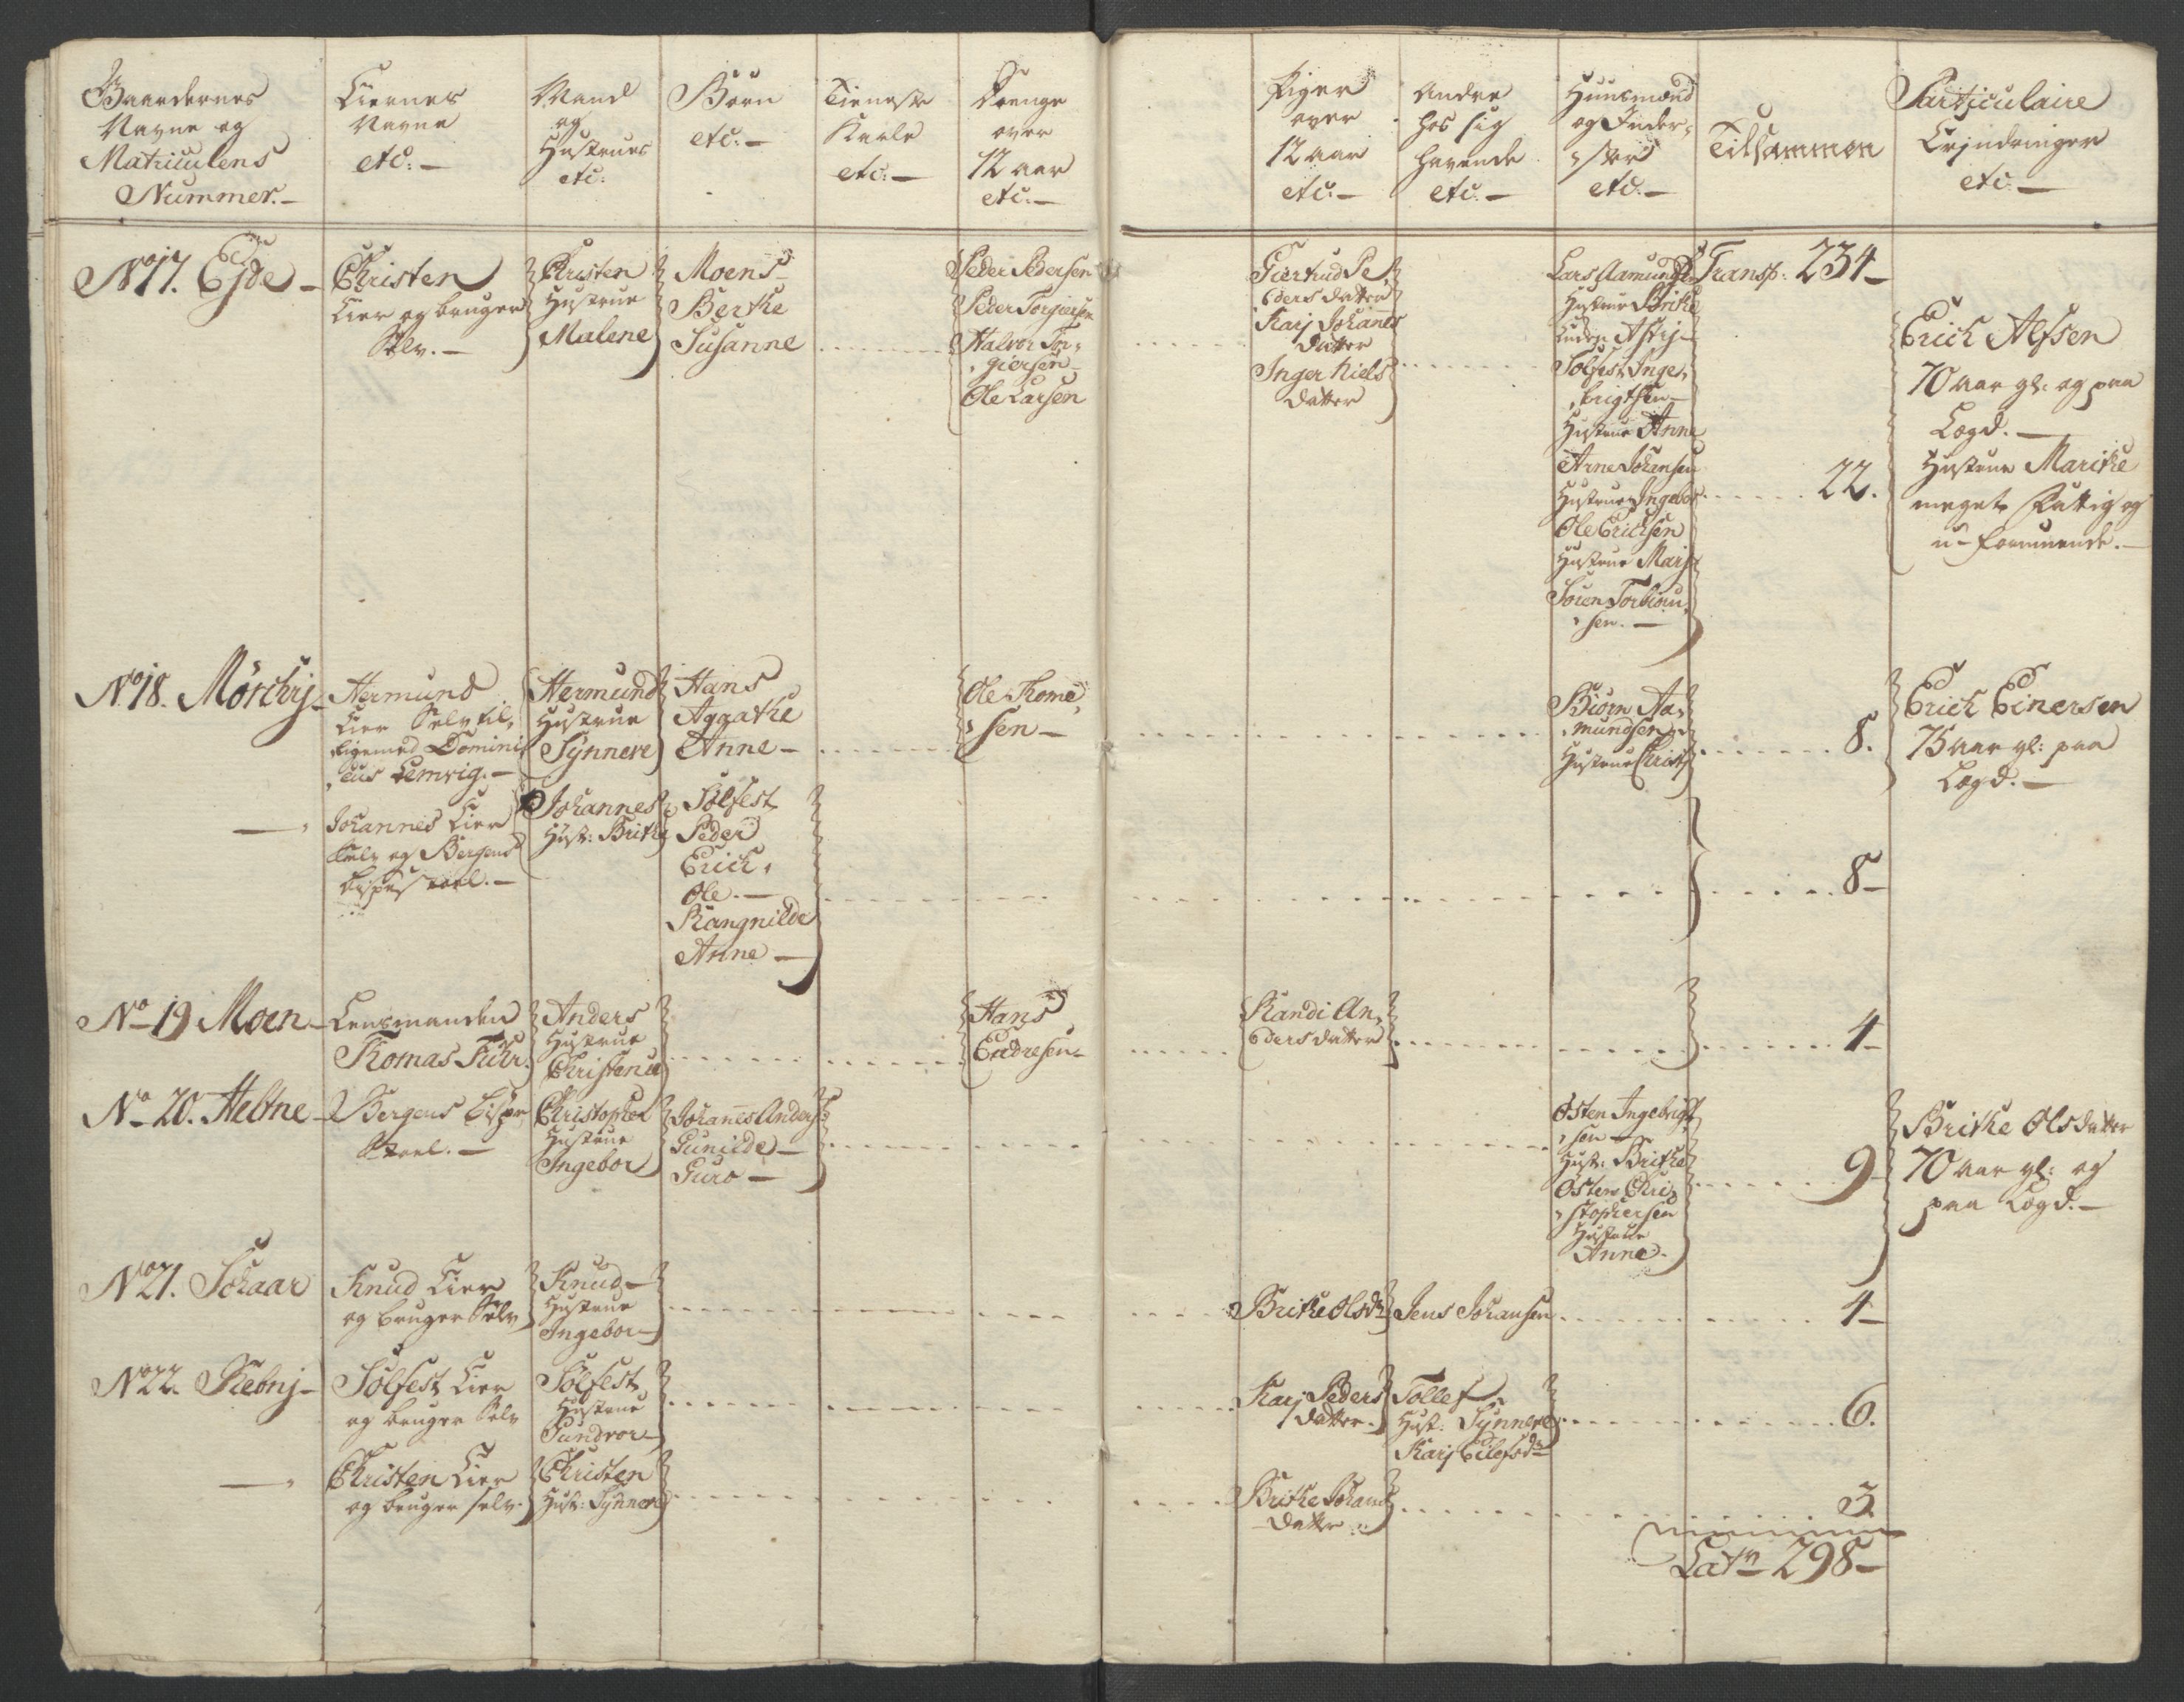 Gaardernes
Navne og
Matriculens
Nummer. —
Eiernes
Navne
etc: —
Mand
og
Hustrues
etc:
Børn
etc: —
Tieneste
Karle
etc: —
Drenge
over
12 aar
etc: —
Piger
over
12 aar
etc: —
Andre
hos sig
havende
etc: —
Huusmænd
og Inder-
ster
etc: —
Tilsammen
Particulaire
Erindringer
etc —
No 17. Ejde —
Christen
Eier og bruger
Selv. —
Christen
Hustrue
Malene
Moens
Berthe
Susanne
Peder Pedersen
Peder Torgiersen
Halvor Tor-
giersen
Ole Larsen
Giertrud Pe-
ders datter
Karj Johannes
datter
Inger Niels
datter
Lars Aamunds
Hustrue Brithe
Astrj
Solfest Inge-
brigtsen —
Hustrue Anne
Arne Johansen
Hustrue Ingebor
Ole Erichsen
Hustrue Marj
Soren Torbiørn-
sen. —
Transp: 234 —
22.
Erich Alfsen
70 aar gl: og paa
Lægd. —
Hustrue Marithe
meget Fattig og
u-formuende. —
No 18. Mörchrj —
Hermund
Eier Selv til-
ligemed Domini-
cus Lemvig. —
Hermund
Hustrue
Synneve
Hans
Agathe
Anne —
Ole Thome-
sen —
Biörn Aa-
mundsen
Hustrue Christj
8.
Erich Einersen
75 aar gl: paa
Lægd. —
— "
Johannes Eier
Selv og Bergens
bispestoel. —
Johannes
Hust: Brithe
Solfest
Peder
Erich
Ole. —
Rangnilde
Anne —
8 —
No 19 Moen —
Lensmanden
Thomas Fuhr.
Anders
Hustrue
Christense
Hans
Endresen —
Randi An-
ders datter
4 —
No 20. Heltne —
Bergens bispe
Stoel. —
Christopher
Hustrue
Ingebor
Johannes Anders
Gunilde —
Guro —
Østen Ingebrigt
sen —
Hust: Brithe
Østen Chri-
stophersen
Hustrue
Anne —
9 —
Brithe Olsdatter
70 aar gl: og
paa Lægd. —
No 21. Schaar
Knud Eier
og bruger Selv
Knud —
Hustrue
Ingebor —
Brithe Olsdr
Jens Johansen
4 —
No 22. Rebnj —
Solfest Eier
og bruger Selv
Solfest
Hustrue
Gundvor —
Karj Peders
datter.
Tollef
Hust: Synneve
Karj Eilefsdr
6.
— "
Christen Eier
og bruger selv.
Christen
Hust: Synneve
Brithe Johans
datter
3.
Lats 298 —